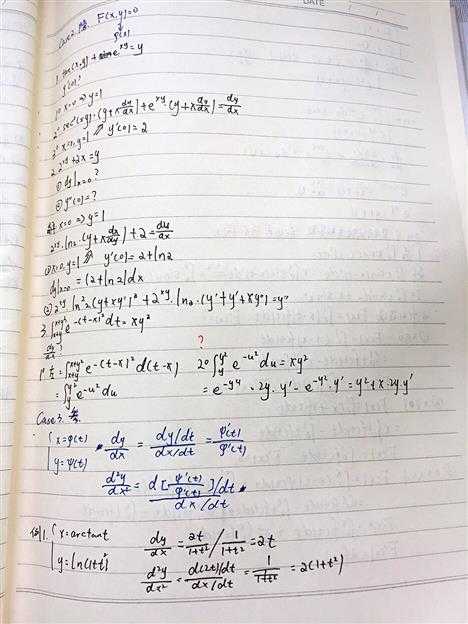 DATE
Case2. 隐. F(x,y)=0
φ(x)
1. tan(xy) + e^{xy} = y
y'(0)?
1° x=0 ⇒ y=1
2° sec²(xy)·(y+x dy/dx) + e^{xy}·(y+x dy/dx) = dy/dx
3° x=0, y=1 ⇗ y'(0)=2
2. 2^{xy}+2x=y
① dy|x=0 ?
② y''(0)=?
解 x=0 ⇒ y=1
2^{xy}·ln2·(y+x dx/dy)+2 = dy/dx
x=0, y=1 ⇗ y'(0)=2+ln2
dy|x=0 = (2+ln2)dx
② 2^{xy} ln²2 (y+xy')² + 2^{xy}·ln2·(y'+y'+xy'') = y''
3. ∫_{x+y}^{x+y²} e^{-(t-x)²}dt = xy²
dy/dx ?
?
1° 左 = ∫_{x+y}^{x+y²} e^{-(t-x)²}d(t-x) 2° ∫_{y}^{y²} e^{-u²}du = xy²
= ∫_{y}^{y²} e^{-u²}du = e^{-y⁴}·2y·y' - e^{-y²}·y' = y²+x·2y·y'
Case3. 参.
{ x=φ(t) dy/dx = (dy/dt)/(dx/dt) = ψ'(t)/φ'(t)
y=ψ(t)
d²y/dx² = d[ψ'(t)/φ'(t)]/dt / dx/dt
例1. { x=arctant dy/dx = 2t/(1+t²) / 1/(1+t²) = 2t
y=ln(1+t²) d²y/dx² = d(2t)/dt / dx/dt = 2/(1/(1+t²)) = 2(1+t²)